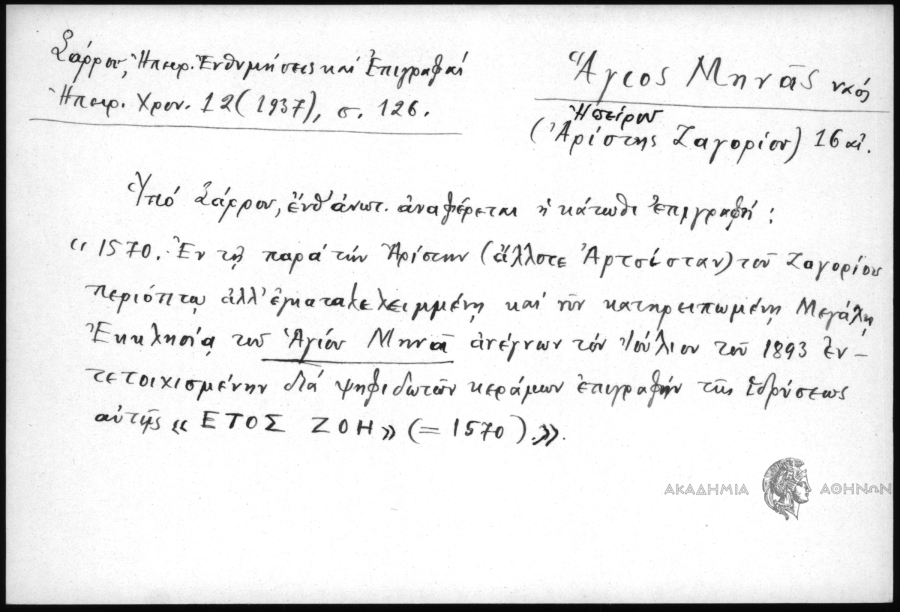 Σάρρου, Ἠπειρ. Ἐνθυμήσεις καί Ἐπιγραφαί
Ἠπειρ. Χρον. 12 (1937), σ. 126.
Ἅγιος Μηνᾶς ναός
Ἠπείρου
(Ἀρίστης Ζαγορίου) 16 αἰ.
Ὑπό Σάρρου, ἔνθ' ἀνωτ. ἀναφέρεται ἡ κάτωθι ἐπιγραφή :
"1570. Ἐν τῇ παρά τήν Ἀρίστην (ἄλλοτε Ἀρτσίσταν) τοῦ Ζαγορίου
περιόπτῳ ἀλλ' ἐγκαταλελειμμένῃ καί νῦν κατηρειπωμένῃ Μεγάλῃ
Ἐκκλησίᾳ τοῦ Ἁγίου Μηνᾶ ἀνέγνων τόν Ἰούλιον τοῦ 1893 ἐν-
τετοιχισμένην διά ψηφιδωτῶν κεράμων ἐπιγραφήν τῆς ἱδρύσεως
αὐτῆς « ΕΤΟΣ ΖΟΗ » (= 1570) ».
ΑΚΑΔΗΜΙΑ ΑΘΗΝΩΝ